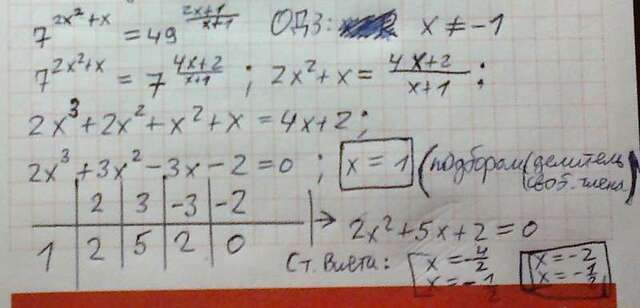 7^{2x²+x} = 49^{\frac{2x+1}{x+1}} ОДЗ: x ≠ -1
7^{2x²+x} = 7^{\frac{4x+2}{x+1}} ; 2x²+x = \frac{4x+2}{x+1} ;
2x³+2x²+x²+x = 4x+2 ;
2x³+3x²-3x-2=0 ; x = 1 (подбором (делитель своб. члена)
2 3 -3 -2
1 2 5 2 0 → 2x²+5x+2=0
Ст. Виета: x = -\frac{4}{2} x = -2
x = -\frac{1}{2} x = -\frac{1}{2}